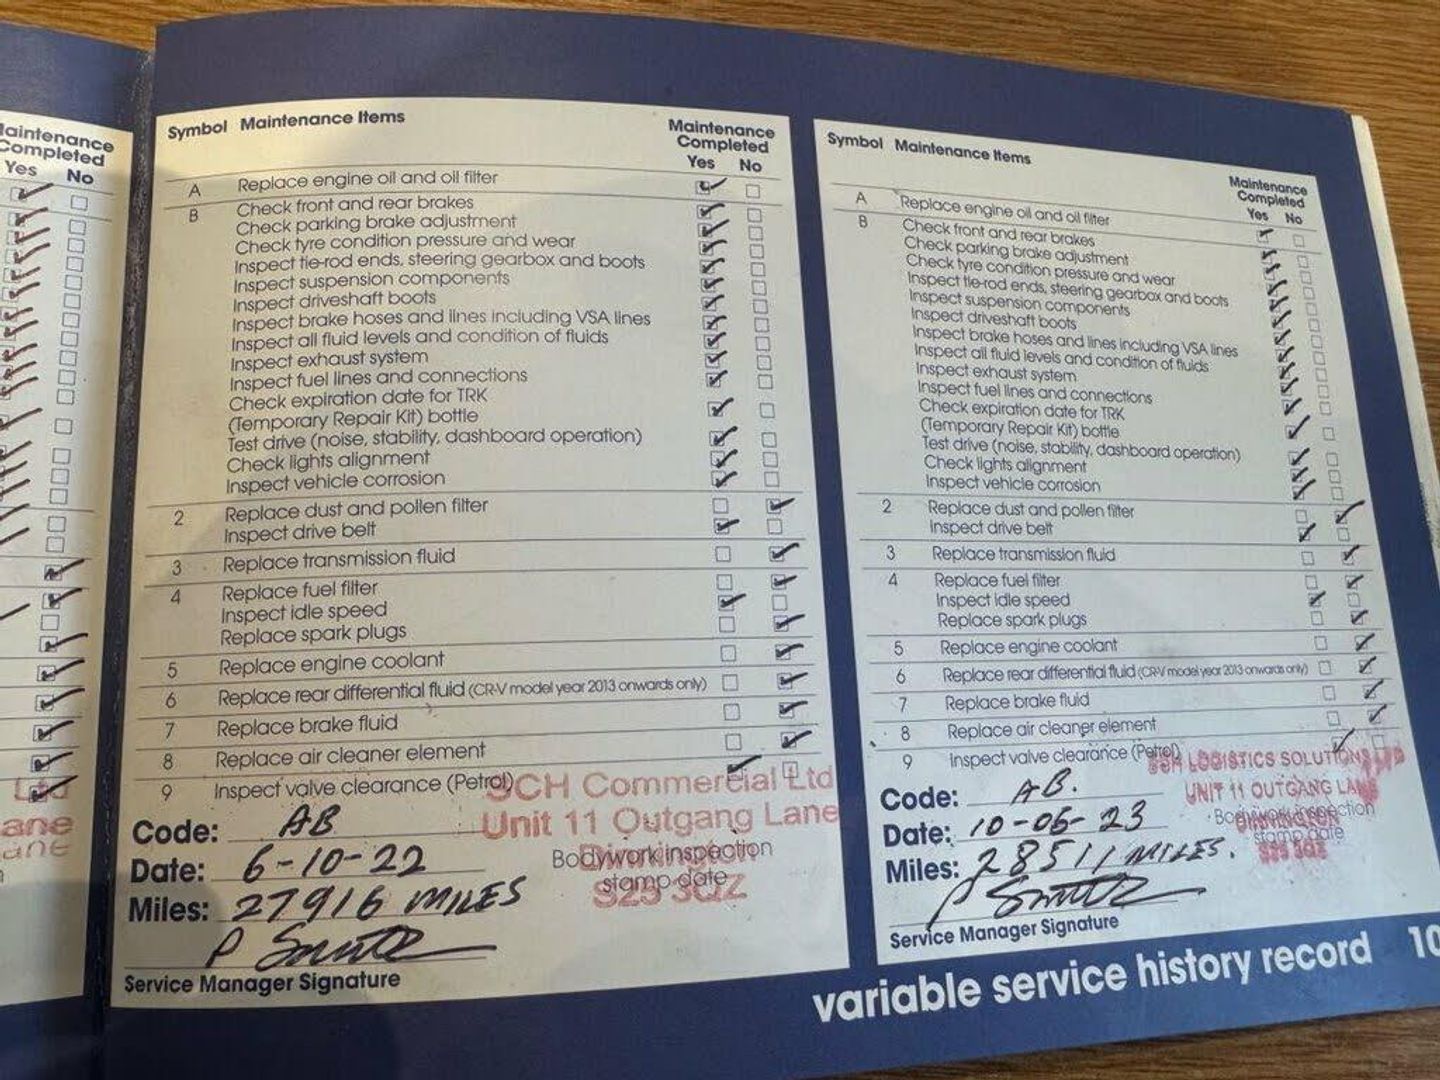 Maintenance
Completed
Yes No
Ltd
ane
ane
Symbol Maintenance Items
Maintenance
Completed
Yes No
A Replace engine oil and oil filter
B Check front and rear brakes
Check parking brake adjustment
Check tyre condition pressure and wear
Inspect tie-rod ends, steering gearbox and boots
Inspect suspension components
Inspect driveshaft boots
Inspect brake hoses and lines including VSA lines
Inspect all fluid levels and condition of fluids
Inspect exhaust system
Inspect fuel lines and connections
Check expiration date for TRK
(Temporary Repair Kit) bottle
Test drive (noise, stability, dashboard operation)
Check lights alignment
Inspect vehicle corrosion
2 Replace dust and pollen filter
Inspect drive belt
3 Replace transmission fluid
4 Replace fuel filter
Inspect idle speed
Replace spark plugs
5 Replace engine coolant
6 Replace rear differential fluid (CR-V model year 2013 onwards only)
7 Replace brake fluid
8 Replace air cleaner element
9 Inspect valve clearance (Petrol)
SCH Commercial Ltd
Unit 11 Outgang Lane
S25 3QZ
Code: AB
Date: 6-10-22
Miles: 27916 MILES
Bodywork inspection
stamp date
P Smith
Service Manager Signature
Symbol Maintenance Items
Maintenance
Completed
Yes No
A Replace engine oil and oil filter
B Check front and rear brakes
Check parking brake adjustment
Check tyre condition pressure and wear
Inspect tie-rod ends, steering gearbox and boots
Inspect suspension components
Inspect driveshaft boots
Inspect brake hoses and lines including VSA lines
Inspect all fluid levels and condition of fluids
Inspect exhaust system
Inspect fuel lines and connections
Check expiration date for TRK
(Temporary Repair Kit) bottle
Test drive (noise, stability, dashboard operation)
Check lights alignment
Inspect vehicle corrosion
2 Replace dust and pollen filter
Inspect drive belt
3 Replace transmission fluid
4 Replace fuel filter
Inspect idle speed
Replace spark plugs
5 Replace engine coolant
6 Replace rear differential fluid (CR-V model year 2013 onwards only)
7 Replace brake fluid
8 Replace air cleaner element
9 Inspect valve clearance (Petrol)
SCH LOGISTICS SOLUTIONS LTD
UNIT 11 OUTGANG LANE
S25 3QZ
Code: AB.
Date: 10-06-23
Miles: 28511 MILES.
Bodywork inspection
stamp date
P Smith
Service Manager Signature
variable service history record 10